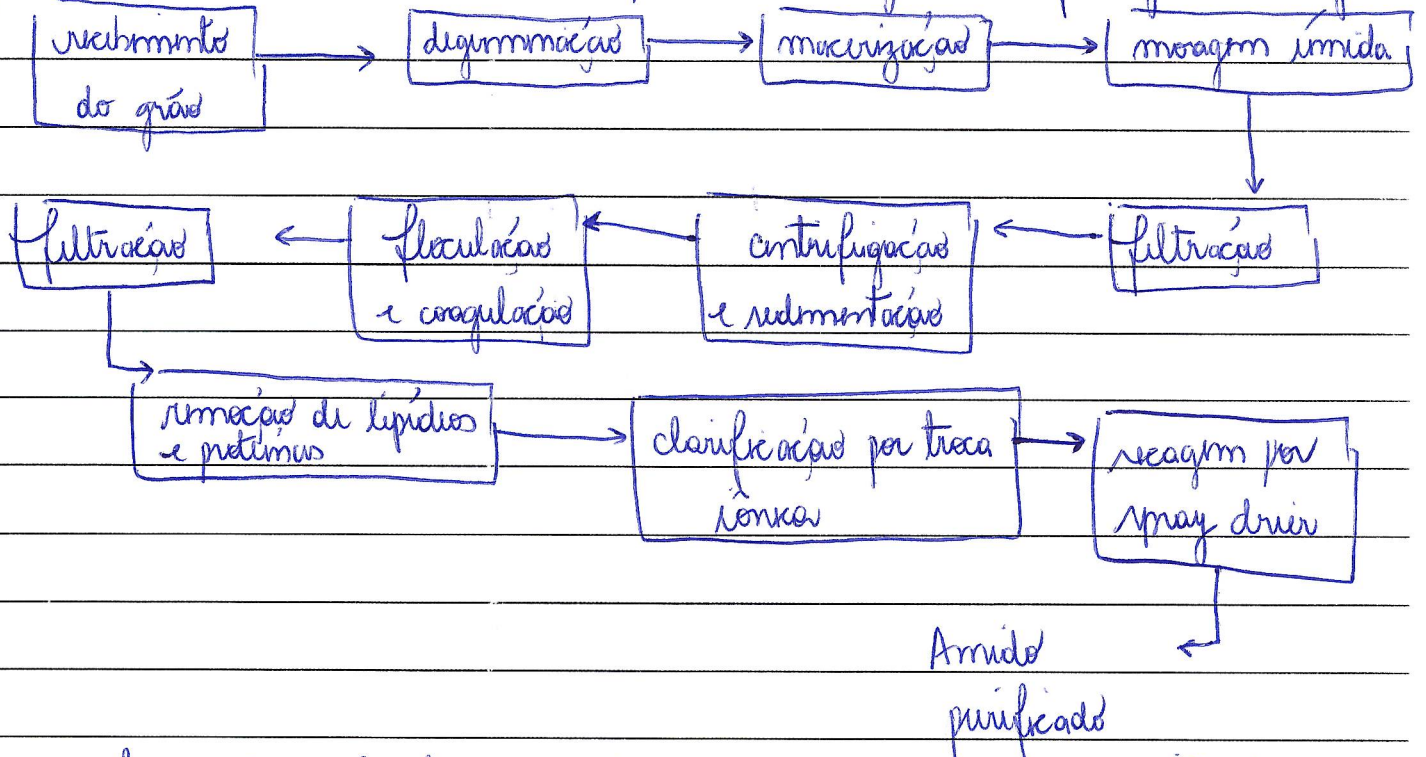 recebimento
do grão
degerminação
macerização
moagem úmida
filtração
centrifugação
e sedimentação
floculação
e coagulação
filtração
remoção de lipídios
e proteínas
clarificação por troca
iônica
secagem por
spray drier
Amido
purificado